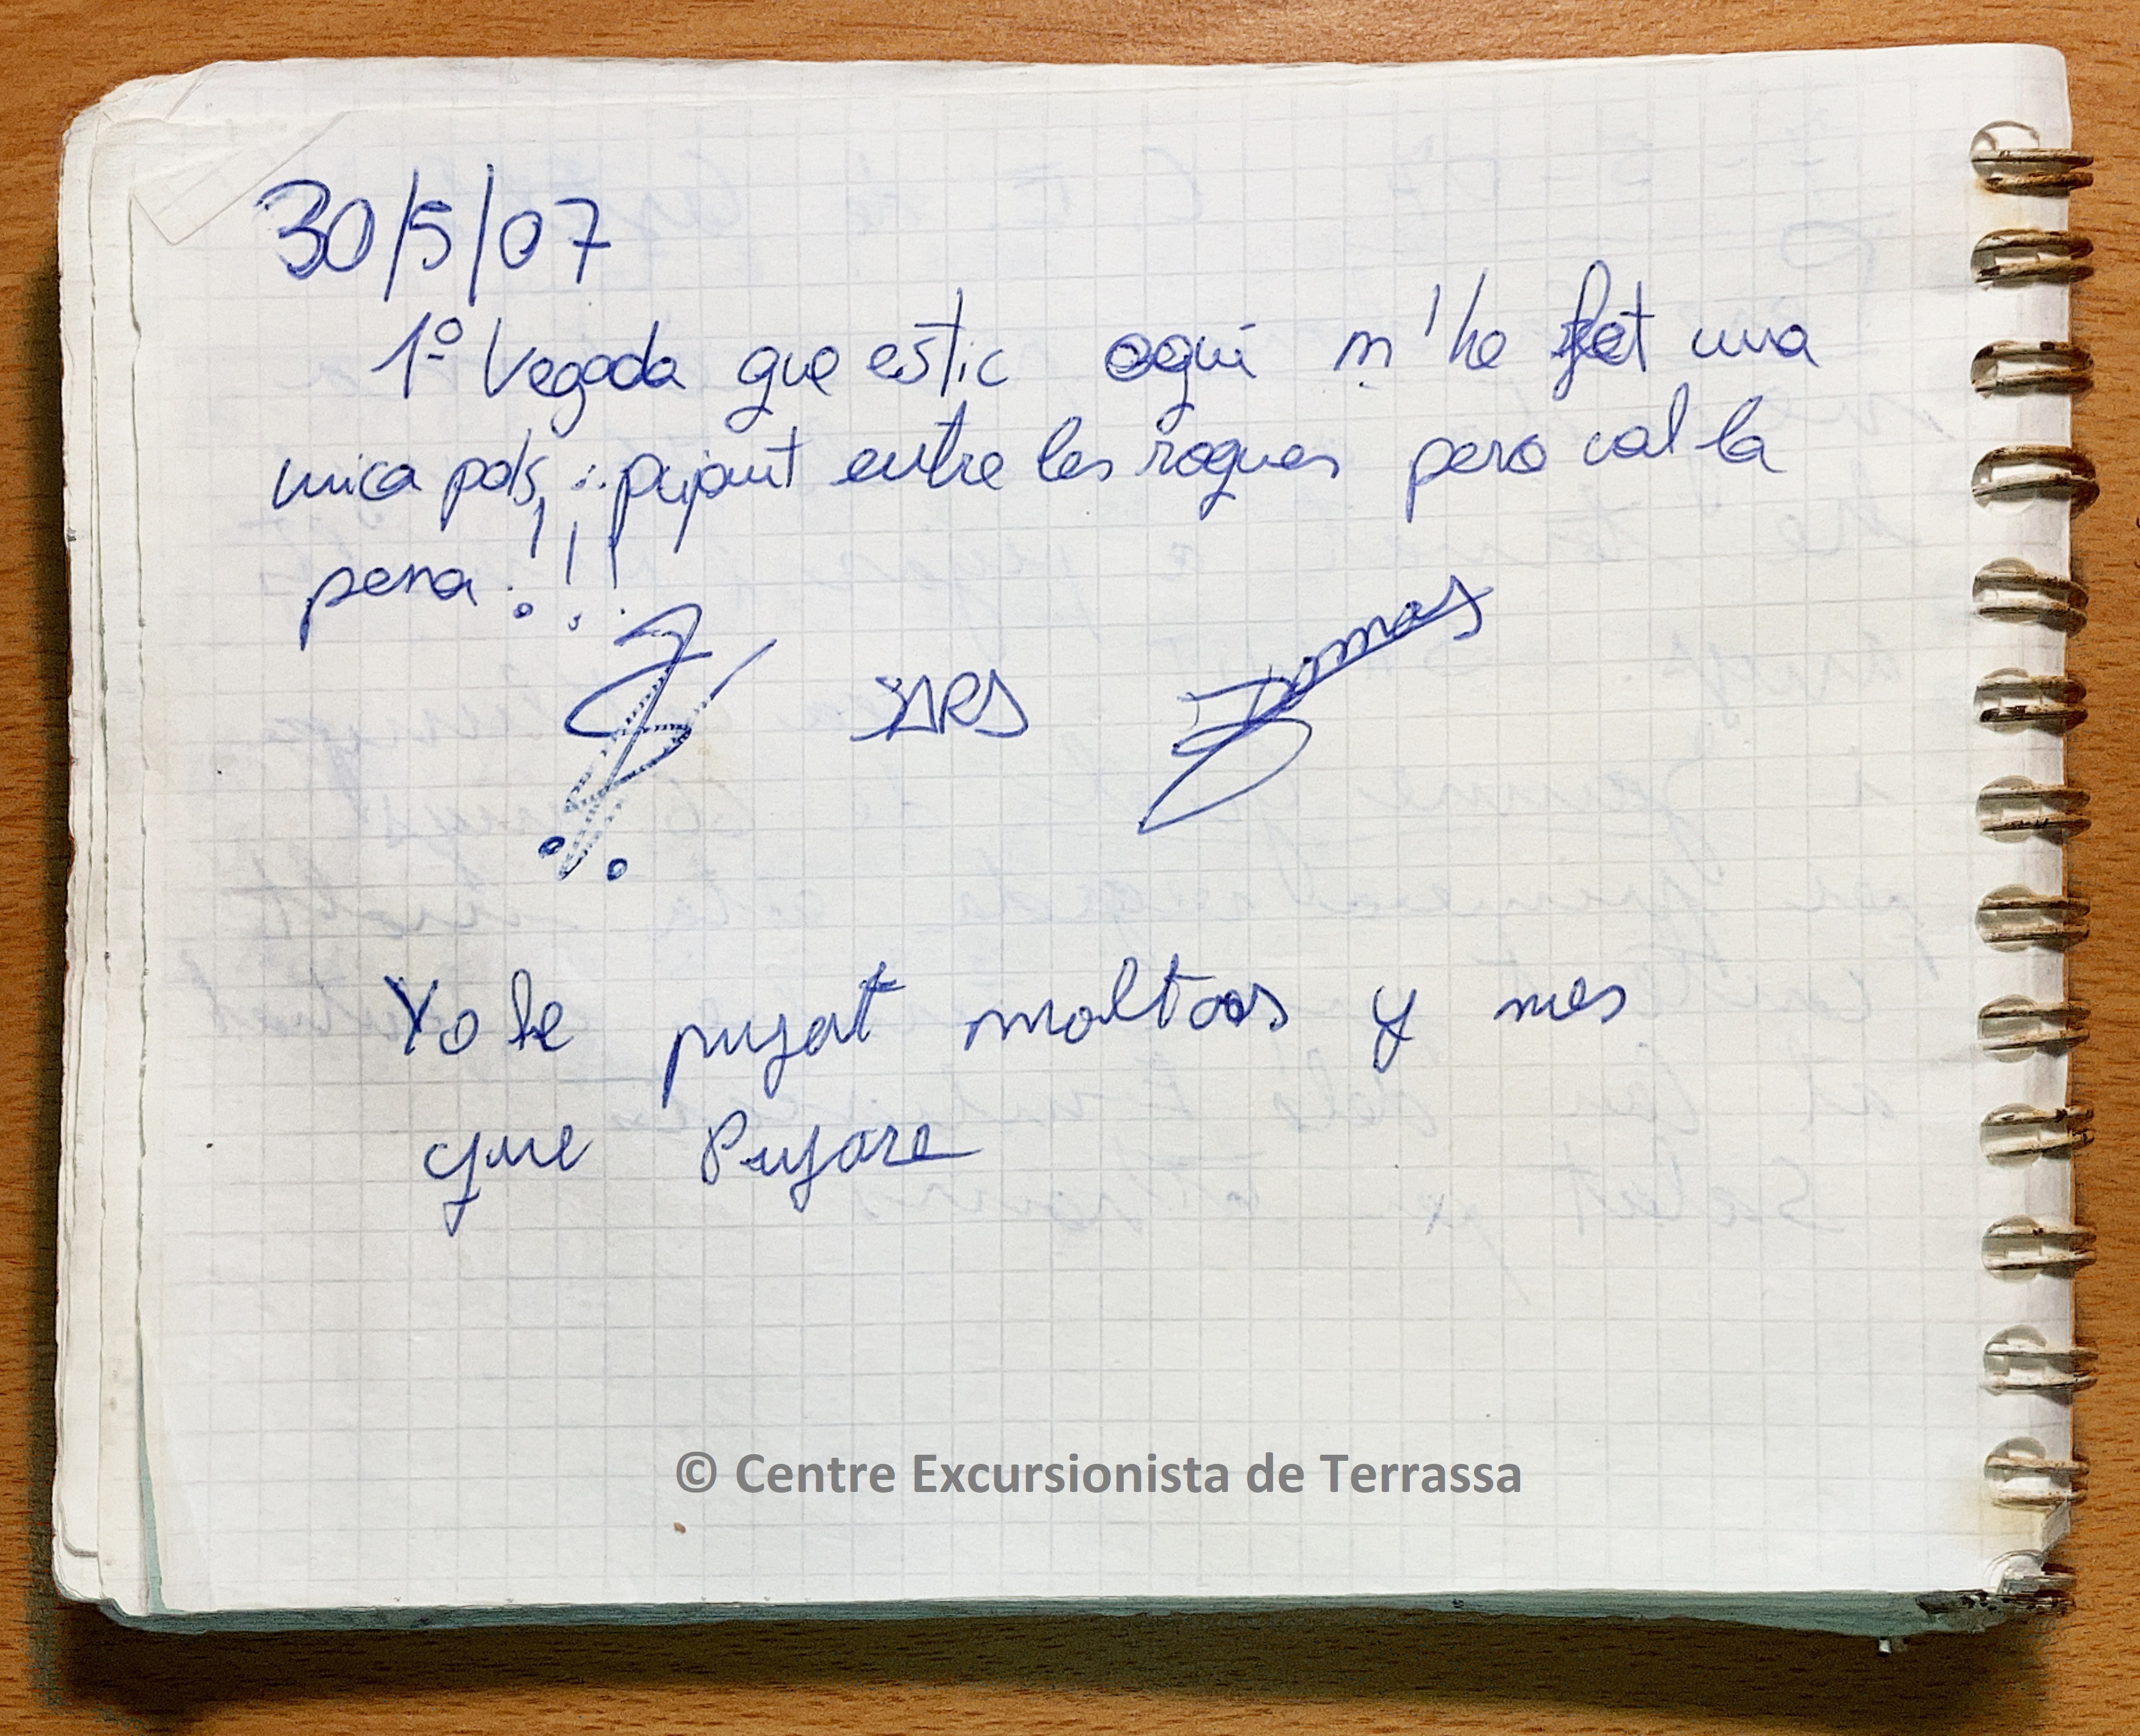 30/5/07
1º Vegada que estic aqui m'he fet una
mica pols, pujant entre les roques pero val la
pena!!!
Tomas
Yo he pujat moltas y mes
que Pujare
© Centre Excursionista de Terrassa